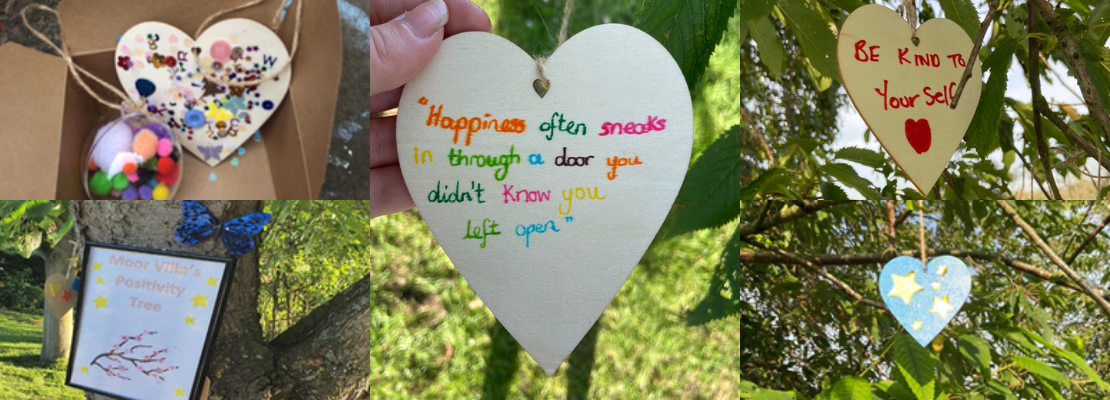 "Happiness often sneaks
in through a door you
didn't know you
left open"
BE KIND TO
Your Self
Moor Villa's
Positivity
Tree